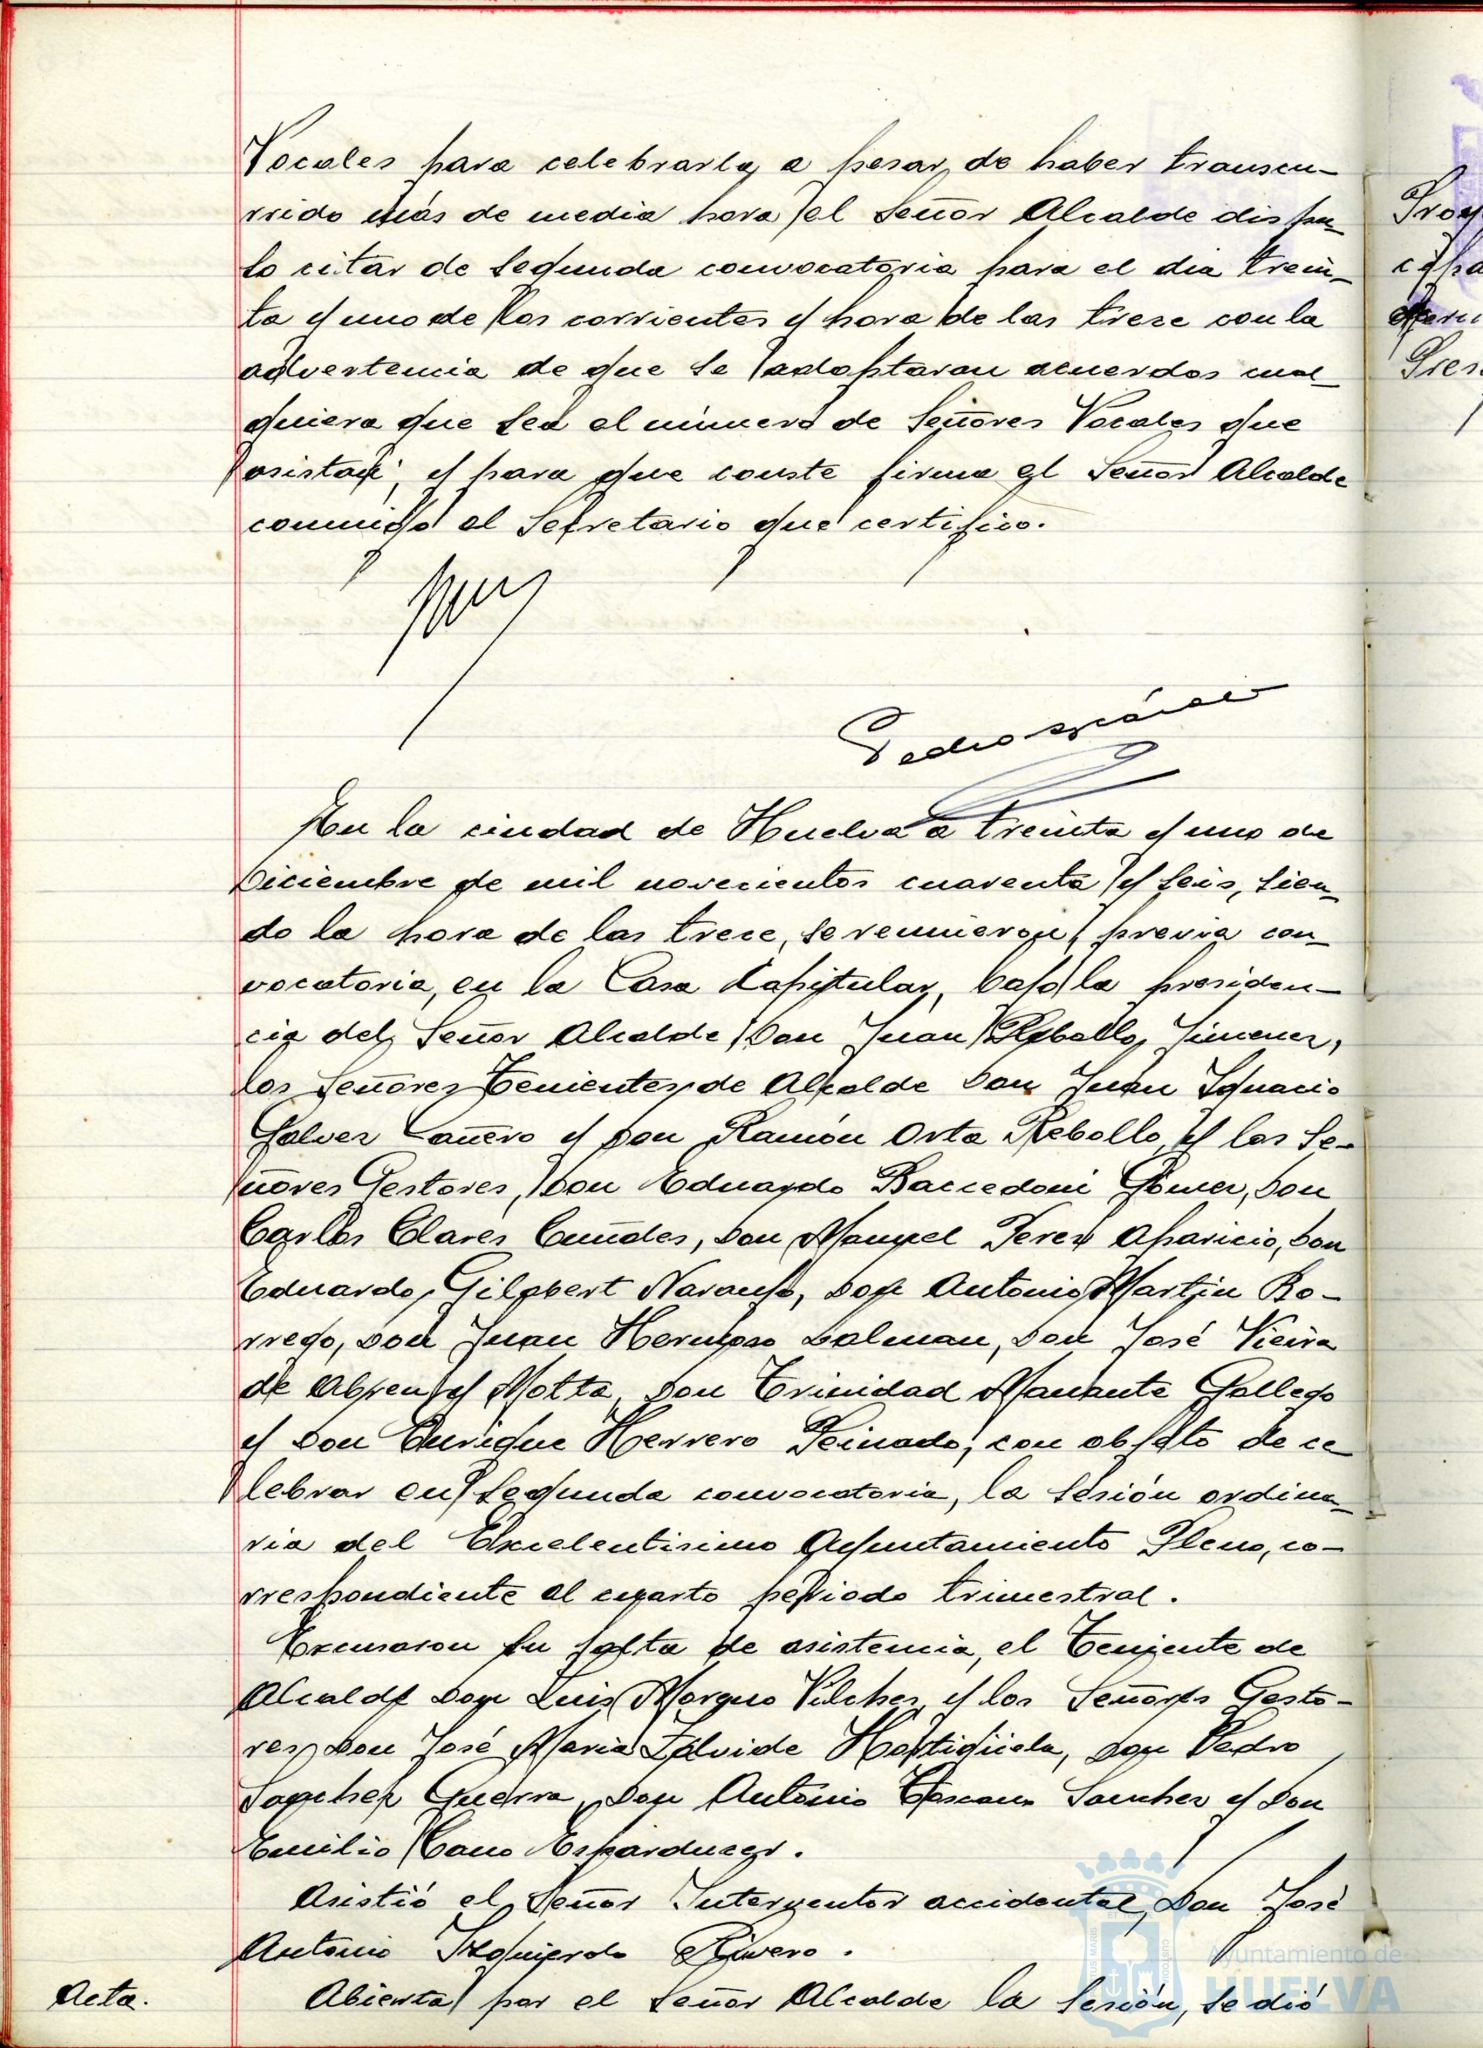 Vocales para celebrarla, a pesar de haber transcu-
rrido más de media hora, el Señor Alcalde dispu-
so citar de segunda convocatoria para el dia trein-
ta y uno de los corrientes y hora de las trece con la
advertencia de que se adoptaran acuerdos cual-
quiera que sea el número de Señores Vocales que
asistan; y para que conste firma el Señor Alcalde
conmigo el Secretario que certifico.
Pedro
En la ciudad de Huelva a treinta y uno de
Diciembre de mil novecientos cuarenta y seis, sien-
do la hora de las trece, se reunieron, previa con-
vocatoria, en la Casa Capitular, bajo la presiden-
cia del Señor Alcalde Don Juan Rebollo Jimenez,
los Señores Tenientes de Alcalde Don Juan Ignacio
Galvez Cañero y Don Ramón Orta Rebollo, y los Se-
ñores Gestores, Don Eduardo Baccedoni Gómez, Don
Carlos Clares Cundes, Don Manuel Perez Aparicio, Don
Eduardo Gilabert Naranjo, Don Antonio Martin Bo-
rrego, Don Juan Hermoso Dalman, Don José Vieira
de Abreu y Motta, Don Trinidad Manzante Gallego
y Don Enrique Herrero Peinado, con objeto de ce-
lebrar en segunda convocatoria, la sesión ordina-
ria del Excelentisimo Ayuntamiento Pleno, co-
rrespondiente al cuarto periodo trimestral.
Excusaron su falta de asistencia, el Teniente de
Alcalde Don Luis Morquo Vilches, y los Señores Gesto-
res, Don José Maria Zalvide Hortigüela, Don Pedro
Sanchez Guerra, Don Antonio Toscano Sanchez y Don
Emilio Cano Esparducer.
Asistió el Señor Interventor accidental, Don José
Antonio Izquierdo Rivero.
Acta. Abierta por el Señor Alcalde la sesión, se dió
Ayuntamiento de
HUELVA